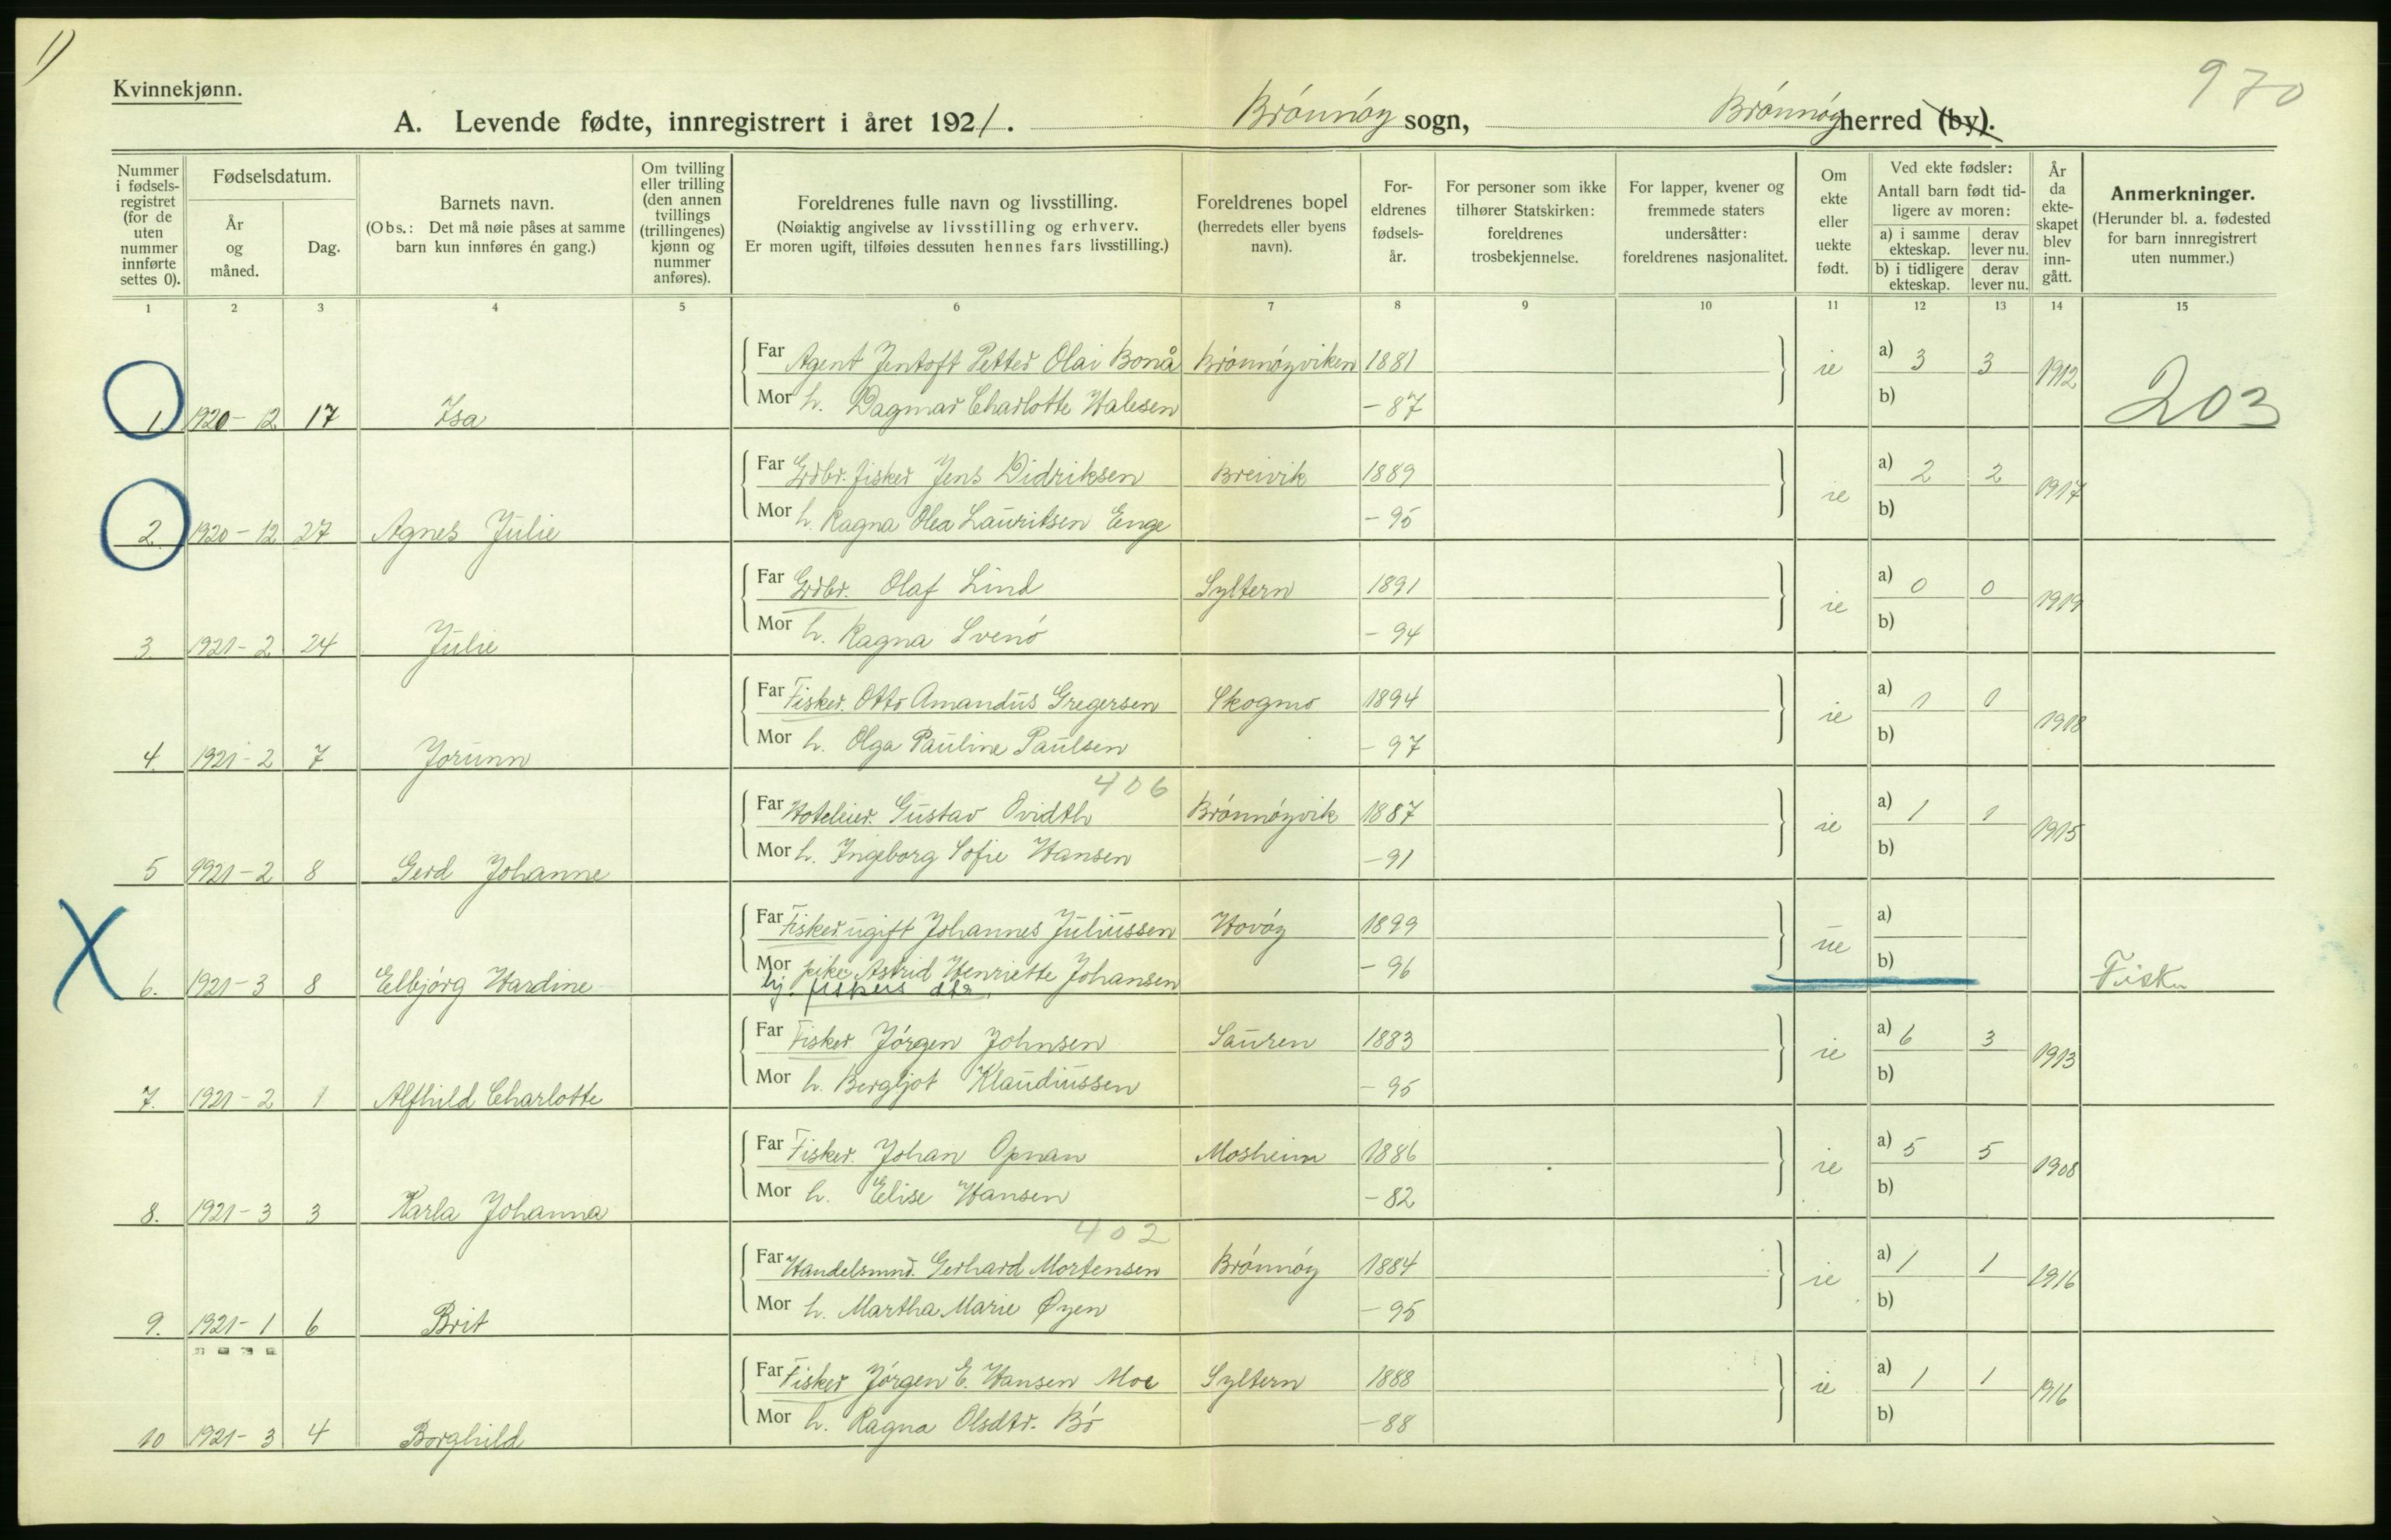 1)
970
Kvinnekjønn.
A. Levende fødte, innregistrert i året 1921. Brönnöy sogn, Brönnöy herred (by).
Nummer i fødsels- registret (for de uten nummer innførte settes 0).
Fødselsdatum.
År og måned.
Dag.
Barnets navn.
(Obs.: Det må nøie påses at samme barn kun innføres én gang.)
Om tvilling eller trilling (den annen tvillings (trillingenes) kjønn og nummer anføres).
Foreldrenes fulle navn og livsstilling.
(Nøiaktig angivelse av livsstilling og erhverv.
Er moren ugift, tilføies dessuten hennes fars livsstilling.)
Foreldrenes bopel
(herredets eller byens navn).
For- eldrenes fødsels- år.
For personer som ikke tilhører Statskirken: foreldrenes trosbekjennelse.
For lapper, kvener og fremmede staters undersåtter: foreldrenes nasjonalitet.
Om ekte eller uekte født.
Ved ekte fødsler:
Antall barn født tid- ligere av moren:
a) i samme ekteskap.
derav lever nu.
b) i tidligere ekteskap.
derav lever nu.
År da ekte- skapet blev inn- gått.
Anmerkninger.
(Herunder bl. a. fødested for barn innregistrert uten nummer.)
1 2 3 4 5 6 7 8 9 10 11 12 13 14 15
Far Agent Jentoft Petter Olai Bonå Brönnöyviken 1881 ie a) 3 3 1912
Mor h. Dagmar Charlotte Halesen - 87 b)
1. 1920 - 12 17 Isa 203
Far Grdbr. fisker Jens Didriksen Breivik 1889 ie a) 2 2 1917
Mor h. Ragna Olea Lauritsen Enge - 95 b)
2. 1920 - 12 27 Agnes Julie
Far Grdbr. Olaf Lind Syltern 1891 ie a) 0 0 1919
Mor h. Ragna Svenö - 94 b)
3. 1921 - 2 24 Julie
Far Fisker. Otto Amandus Gregersen Skogmo 1894 ie a) 1 0 1918
Mor h. Olga Pauline Paulsen - 97 b)
4. 1921 - 2 7 Jorunn
406
Far Hoteleier. Gustav Qvidth Brönnöyvik 1887 ie a) 1 1 1915
Mor h. Ingeborg Sofie Hansen - 91 b)
5 1921 - 2 8 Gerd Johanne
Far Fisker ugift Johannes Juliussen Hovöy 1899 ue a)
Mor pike Astrid Henriette Johansen - 96 b)
hj. fiskers dtr.
X 6. 1921 - 3 8 Elbjörg Hardine Fisk.
Far Fisker Jörgen Johnsen Sauren 1883 ie a) 6 3 1913
Mor h. Bergljot Klaudiussen - 95 b)
7. 1921 - 2 1 Alfhild Charlotte
Far Fisker. Johan Opnan Mosheim 1886 ie a) 5 5 1908
Mor h. Elise Hansen - 82 b)
8. 1921 - 3 3 Karla Johanna
402
Far Handelsmnd. Gerhard Mortensen Brönnöy 1884 ie a) 1 1 1916
Mor h. Martha Marie Øyen - 95 b)
9. 1921 - 1 6 Brit
Far Fisker Jörgen E. Hansen Moe Syltern 1888 ie a) 1 1 1916
Mor h. Ragna Olsdtr. Bö - 88 b)
10 1921 - 3 4 Borghild